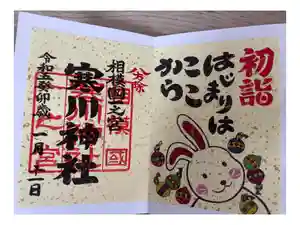 初詣
はじまりは
ここ
から
八方除
相模國一之宮
寒川神社
令和五癸卯歳 一月十一日